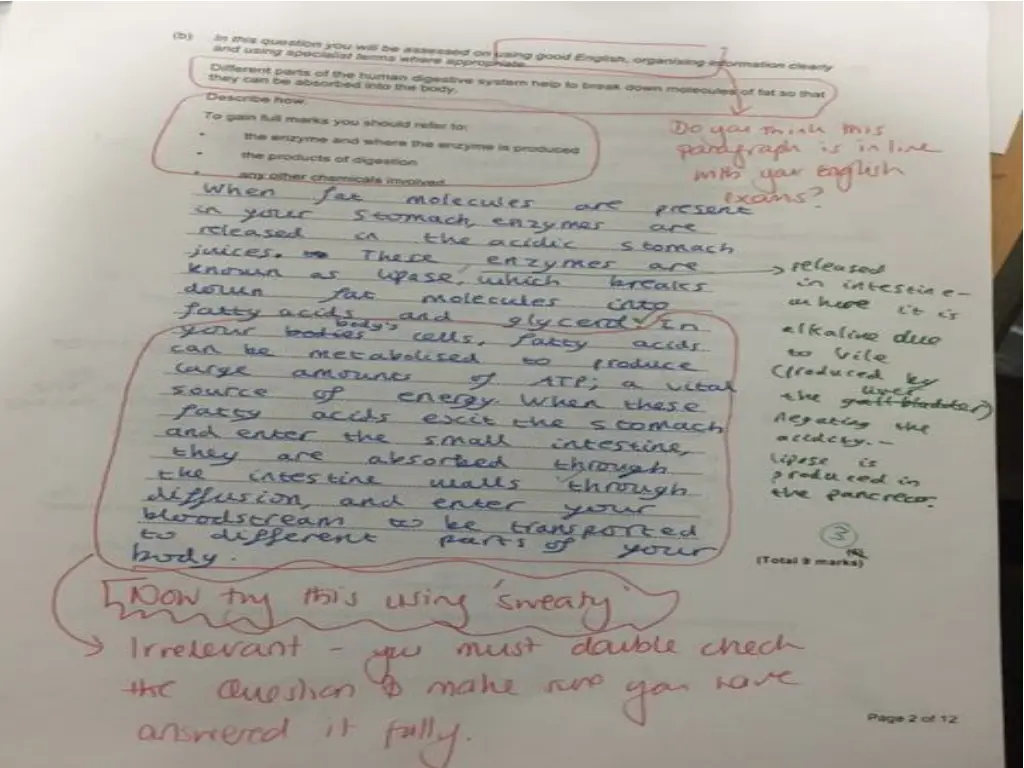 (b) In this question you will be assessed on using good English, organising information clearly
and using specialist terms where appropriate.
Different parts of the human digestive system help to break down molecules of fat so that
they can be absorbed into the body.
Describe how.
To gain full marks you should refer to:
• the enzyme and where the enzyme is produced
• the products of digestion
• any other chemicals involved
Do you think this
paragraph is in line
with your English
exams?
When fat molecules are present
in your stomach, enzymes are
released in the acidic stomach
juices. These enzymes are
known as lipase, which breaks
down fat molecules into
fatty acids and glycerol. In
your bodies body's cells, fatty acids
can be metabolised to produce
large amounts of ATP; a vital
source of energy. When these
fatty acids exit the stomach
and enter the small intestine,
they are absorbed through
the intestine walls through
diffusion, and enter your
bloodstream to be transported
to different parts of your
body.
released
in intestine -
where it is
alkaline due
to bile
(produced by
the gall bladder liver)
negating the
acidity. -
lipase is
produced in
the pancreas.
3
(Total 9 marks)
Now try this using 'sweaty'
Irrelevant - you must double check
the question & make sure you have
answered it fully.
Page 2 of 12